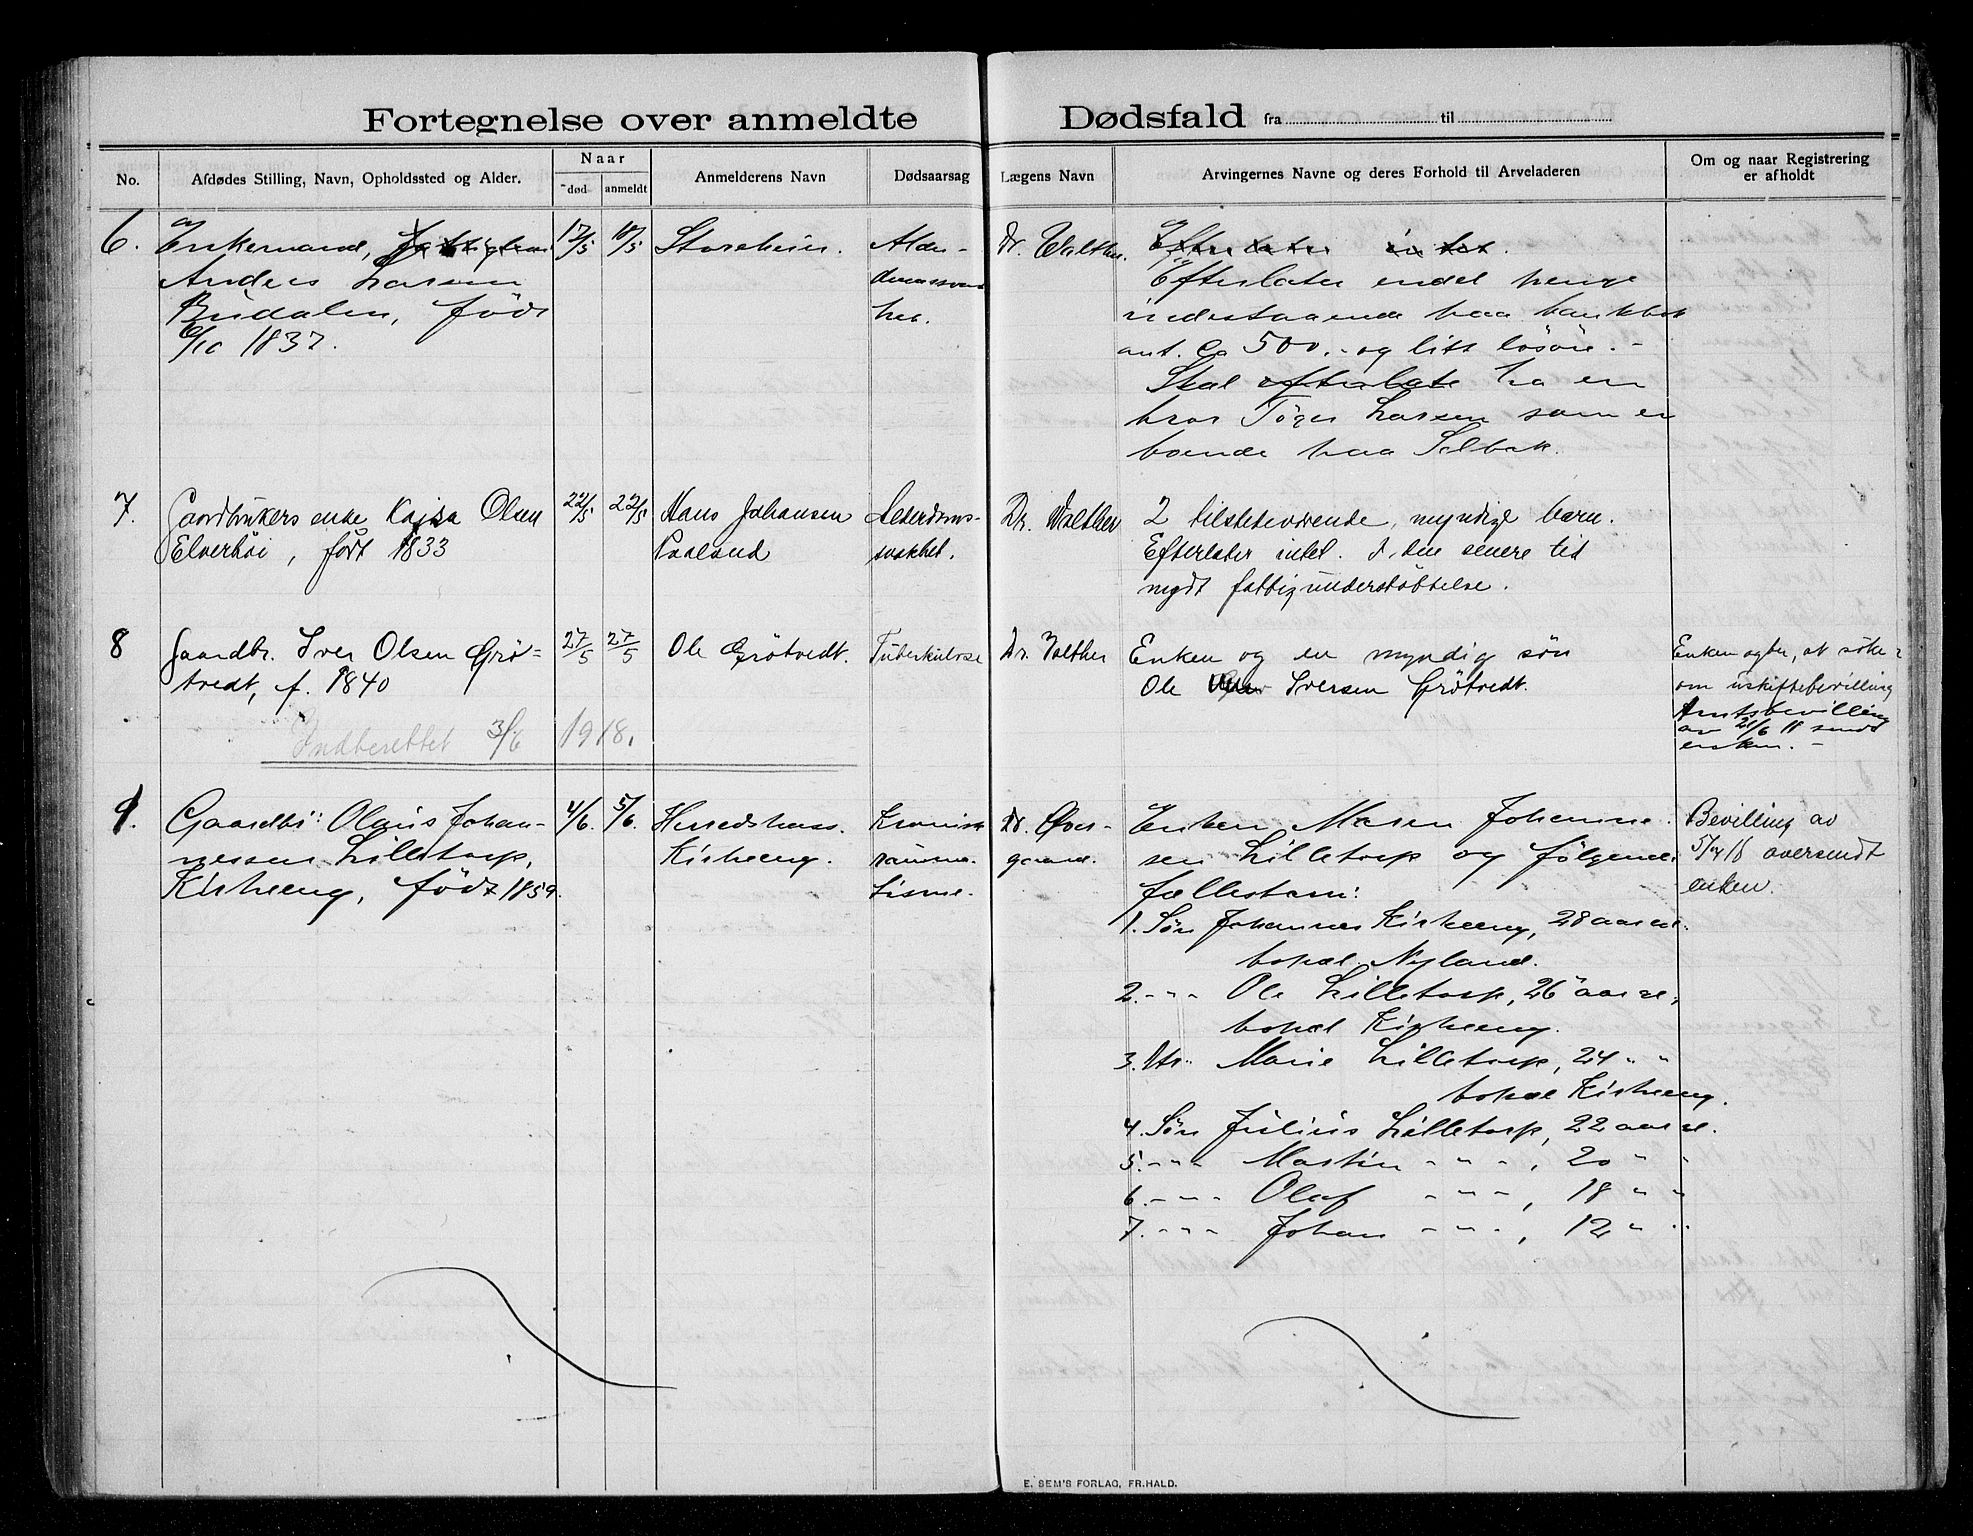 Fortegnelse over anmeldte Dødsfald fra til
No.
Afdødes Stilling, Navn, Opholdssted og Alder.
Naar
død
anmeldt
Anmelderens Navn
Dødsaarsag
Lægens Navn
Arvingernes Navne og deres Forhold til Arveladeren
Om og naar Registrering
er afholdt
6.
Enkemand,
Anders Larsen
Budalen, född
6/10 1837.
17/5
Storeheier.
Alder-
her.
Dr. Walther.
Efterlater intet.
Efterlater endel penge
indestaaende paa bankbok
ant. ca 500.- og litt løsøre.-
Skal efterlate ha en
bror Töger Larsen som er
boende paa Selbak.
7.
Gaardbrukers enke Kajsa Olsen
Elverhöi, født 1833
22/5
22/5
Hans Johansen
Paaland
Alderdoms-
svakhet.
Dr. Walther
2 tilstedeværende, myndige barn.
Efterlater intet. I den senere tid
nydt fattigunderstøbttelse.
8
Gaardbr. Iver Olsen Grö-
tvedt, f. 1840
27/5
27/5
Ole Grötvedt.
Tuberkulose
Dr. Walther
Enken og en myndig søn
Ole Iversen Grötvedt.
Enken agter, at söke
om uskiftebevilling
Amtsbevilling
av 21/6 18 sendt
enken.-
Indberettet 3/6 1918.
9.
Gaardbr: Olaus Johan-
nessen Lilletorp,
Kirkeeng, födt 1859.
4/6.
5/6.
Kirkeeng.
Kronisk
reuma-
tisme.
Dr. Over-
gaard.
Enken Maren Johanne-
sen Lilletorp og følgende
fællesbarn:
1. Søn Johannes Kirkeeng, 28 aar gl.
bopæl Nyland.
2. -"- Ole Lilletorp, 26 aar gl,
bopæl Kirkeeng.
3. Dtr. Marie Lilletorp, 24 " "
bopæl Kirkeeng.
4. Søn Julius Lilletorp, 22 aar gl.
5. -"- Martin -"-, 20 " "
6. -"- Olaf -"-, 18 " "
7. -"- Johan -"-, 12 " "
Bevilling av
5/7 18 oversendt
enken.
E. SEM'S FORLAG, FR.HALD.